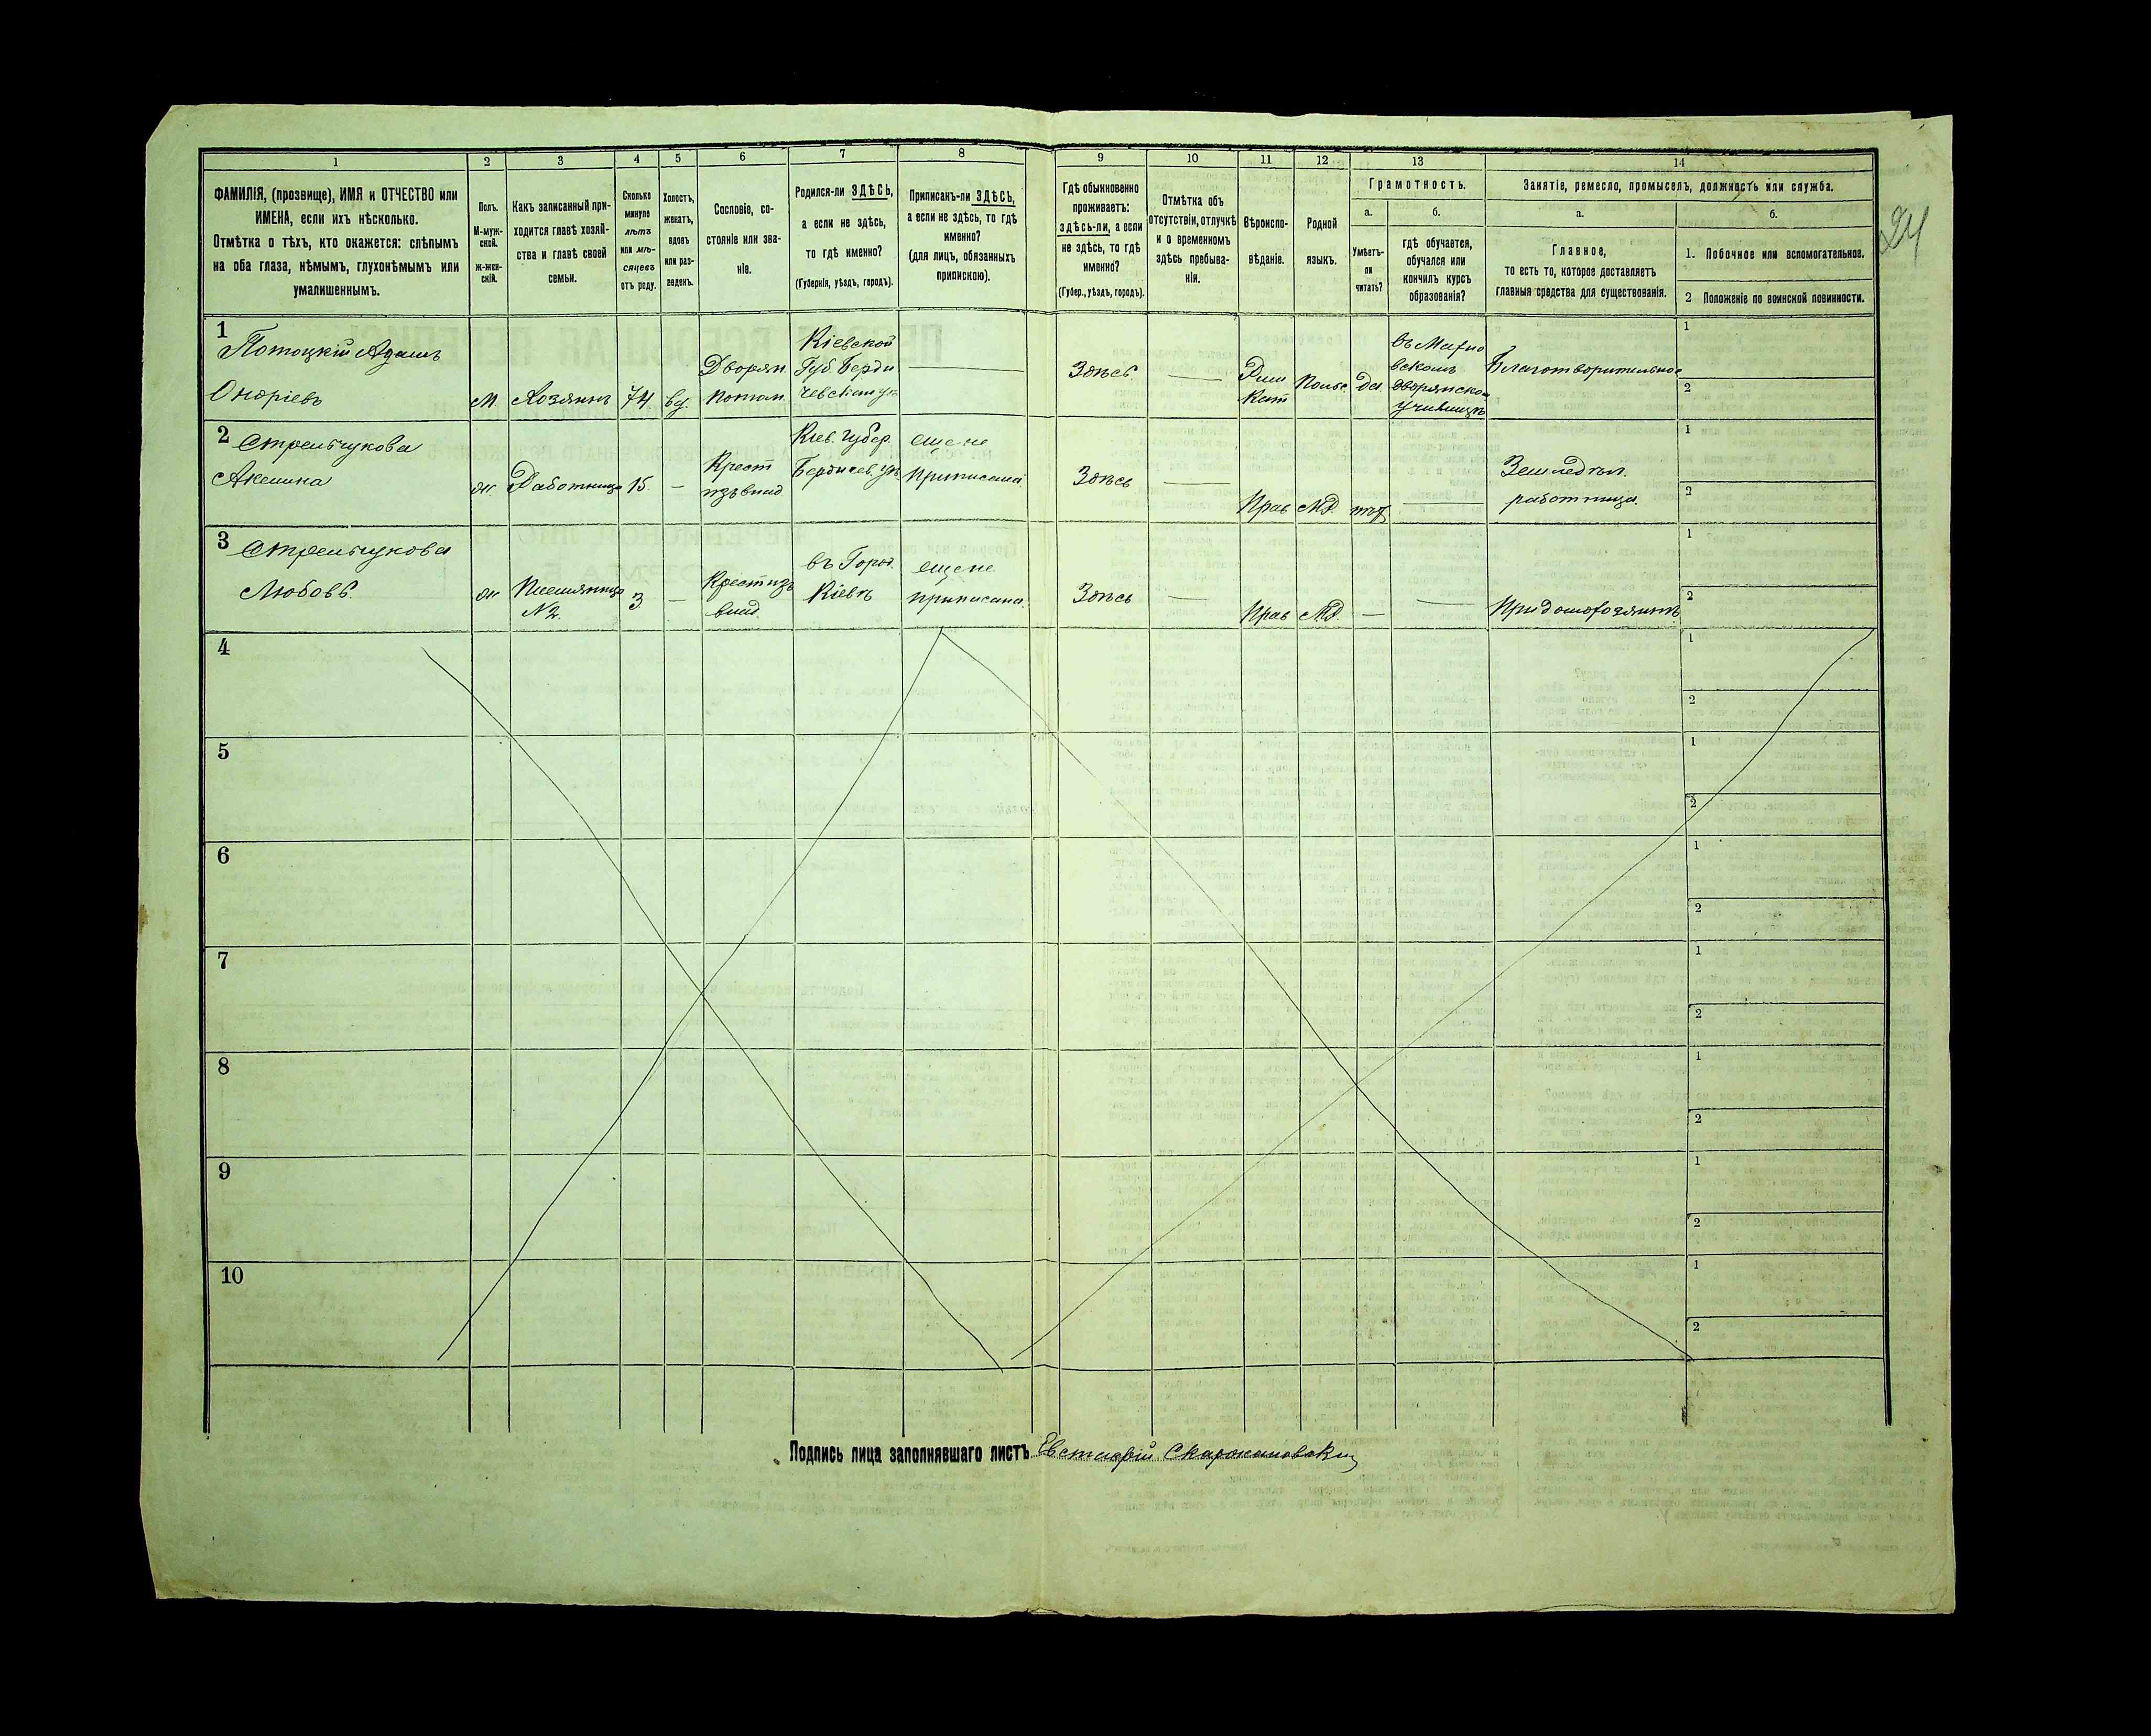 1
2
3
4
5
6
7
8
9
10
11
12
13
14
24
ФАМИЛІЯ, (прозвище), ИМЯ и ОТЧЕСТВО или
ИМЕНА, если ихъ нѣсколько.
Отмѣтка о тѣхъ, кто окажется: слѣпымъ
на оба глаза, нѣмымъ, глухонѣмымъ или
умалишеннымъ.
Полъ.
М-муж-
ской.
ж-жен-
скій.
Какъ записанный при-
ходится главѣ хозяй-
ства и главѣ своей
семьи.
Сколько
минуло
лѣтъ
или мѣ-
сяцевъ
отъ роду.
Холостъ,
женатъ,
вдовъ
или раз-
веденъ.
Сословіе, со-
стояніе или зва-
ніе.
Родился-ли ЗДѢСЬ,
а если не здѣсь,
то гдѣ именно?
(Губернія, уѣздъ, городъ).
Приписанъ-ли ЗДѢСЬ,
а если не здѣсь, то гдѣ
именно?
(для лицъ, обязанныхъ
припискою).
Гдѣ обыкновенно
проживаетъ:
здѣсь-ли, а если
не здѣсь, то гдѣ
именно?
(Губер., уѣздъ, городъ).
Отмѣтка объ
отсутствіи, отлучкѣ
и о временномъ
здѣсь пребыва-
ніи.
Вѣроиспо-
вѣданіе.
Родной
языкъ.
Грамотность.
а.
Умѣетъ-
ли
читать?
б.
гдѣ обучается,
обучался или
кончилъ курсъ
образованія?
Занятіе, ремесло, промыселъ, должность или служба.
а.
Главное,
то есть то, которое доставляетъ
главныя средства для существованія.
б.
1. Побочное или вспомогательное.
2 Положеніе по воинской повинности.
1
Потоцкій Адамъ
Оноріевъ
М.
Хозяинъ
74
вд.
Дворян.
потом.
Кіевской
Губ. Берди
чевскаго уѣ.
Здѣсь
Рим
Кат
Польс.
да
дворянском
училищѣ
Благотворительное
1
2
2
Стрельчукова
Акелина
ж
Работница
15
—
Крест
изъ влад
Кіев. Губер.
Бердичев. уѣ.
еще не
приписана
Здѣсь
Прав
МР.
нѣт
Земледѣл.
работница.
1
2
3
Стрельчукова
Любовь.
ж
Племянница
N2.
3
—
Крест изъ
влад.
въ Город.
Кіевѣ
еще не
приписана.
Здѣсь
Прав
МР.
—
При домохозяинѣ
1
2
4
1
2
5
1
2
6
1
2
7
1
2
8
1
2
9
1
2
10
1
2
Подпись лица заполнявшаго листъ Евстафій Скаржановскій